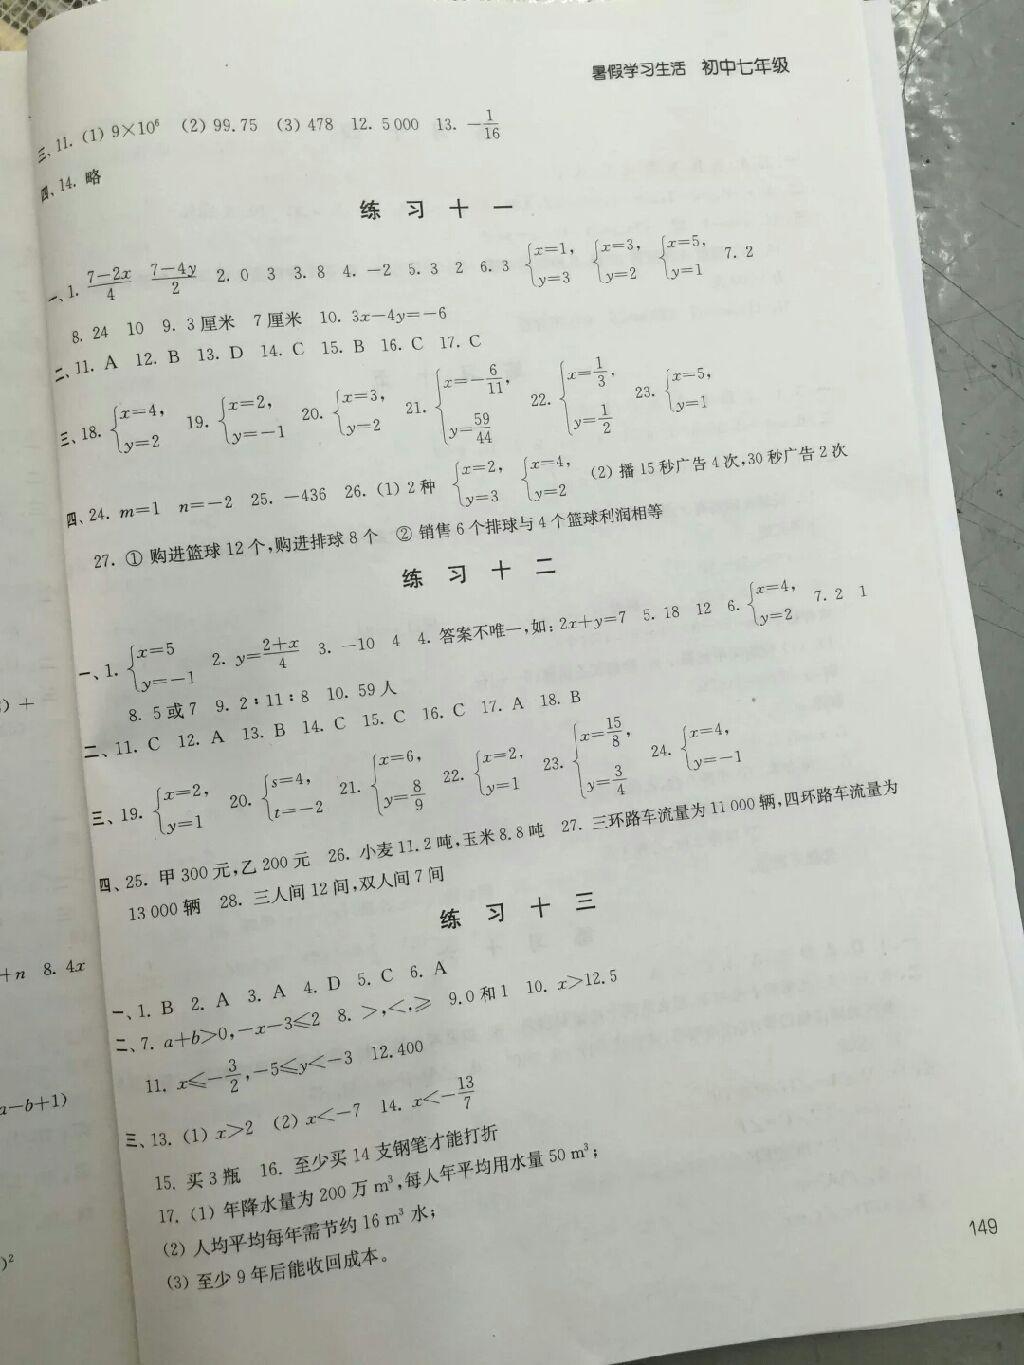 暑假学习生活 初中七年级
三、11. (1) 9×10⁶ (2) 99.75 (3) 478 12. 5 000 13. −1/16
四、14. 略
练 习 十 一
一、1. (7−2x)/4 (7−4y)/2 2. 0 3 3. 8 4. −2 5. 3 2 6. 3 {x=1, y=3 {x=3, y=2 {x=5, y=1 7. 2
8. 24 10 9. 3 厘米 7 厘米 10. 3x−4y=−6
二、11. A 12. B 13. D 14. C 15. B 16. C 17. C
三、18. {x=4, y=2 19. {x=2, y=−1 20. {x=3, y=2 21. {x=−6/11, y=59/44 22. {x=1/3, y=1/2 23. {x=5, y=1
四、24. m=1 n=−2 25. −436 26. (1) 2 种 {x=2, y=3 {x=4, y=2 (2) 播 15 秒广告 4 次,30 秒广告 2 次
27. ① 购进篮球 12 个,购进排球 8 个 ② 销售 6 个排球与 4 个篮球利润相等
练 习 十 二
一、1. {x=5 y=−1 2. y=(2+x)/4 3. −10 4 4. 答案不唯一,如:2x+y=7 5. 18 12 6. {x=4, y=2 7. 2 1
8. 5 或 7 9. 2∶11∶8 10. 59 人
二、11. C 12. A 13. B 14. C 15. C 16. C 17. A 18. B
三、19. {x=2, y=1 20. {s=4, t=−2 21. {x=6, y=8/9 22. {x=2, y=1 23. {x=15/8, y=3/4 24. {x=4, y=−1
四、25. 甲 300 元,乙 200 元 26. 小麦 11.2 吨,玉米 8.8 吨 27. 三环路车流量为 11 000 辆,四环路车流量为
13 000 辆 28. 三人间 12 间,双人间 7 间
练 习 十 三
一、1. B 2. A 3. A 4. D 5. C 6. A
二、7. a+b>0,−x−3≤2 8. >,<,≥ 9. 0 和 1 10. x>12.5
11. x≤−3/2,−5≤y<−3 12. 400
三、13. (1) x>2 (2) x<−7 14. x<−13/7
15. 买 3 瓶 16. 至少买 14 支钢笔才能打折
17. (1) 年降水量为 200 万 m³,每人年平均用水量 50 m³;
(2) 人均平均每年需节约 16 m³ 水;
(3) 至少 9 年后能收回成本。
149
) +
+n 8. 4x
a−b+1)
)²